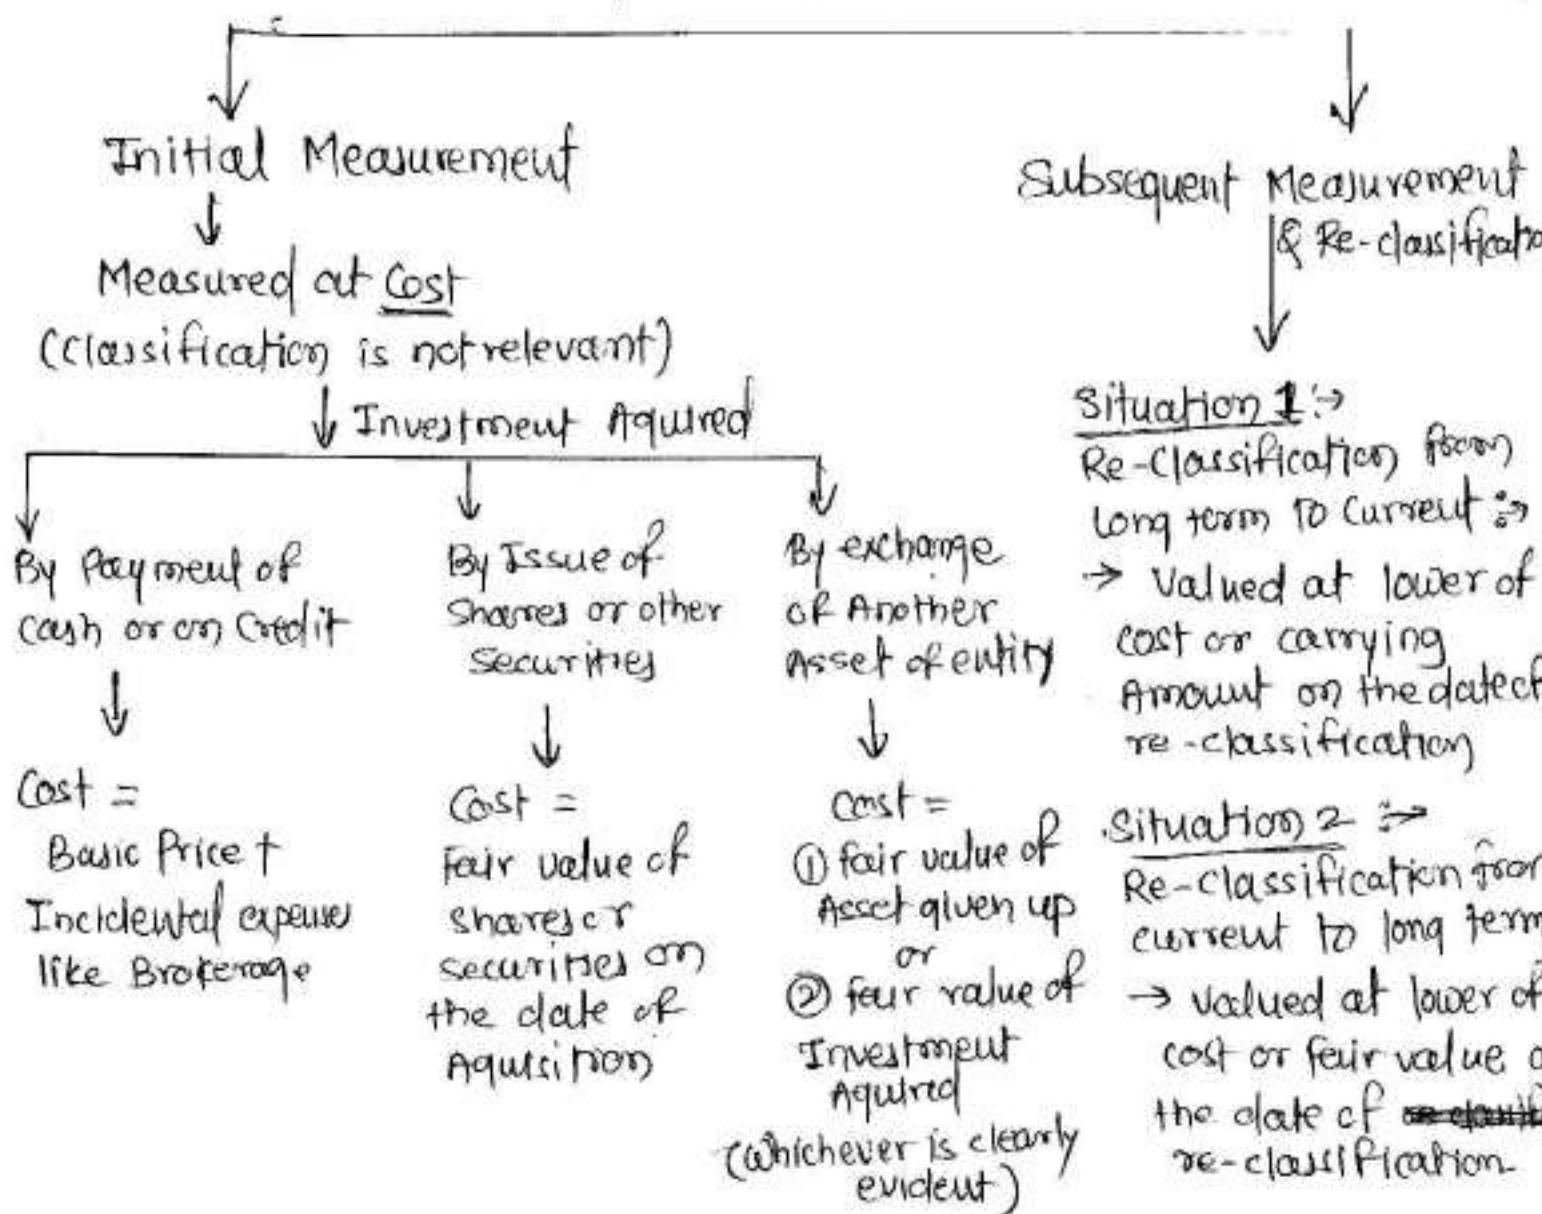 Initial Measurement
Measured at Cost
(Classification is not relevant)
Investment Aquired
By Payment of
cash or on Credit
Cost =
Basic Price +
Incidental expenses
like Brokerage
By Issue of
shares or other
securities
Cost =
Fair value of
shares or
securities on
the date of
Aquisition
By exchange
of Another
Asset of entity
Cost =
① fair value of
Asset given up
or
② fair value of
Investment
Aquired
(whichever is clearly
evident)
Subsequent Measurement
& Re-classificatio
Situation 1 :→
Re-Classification from
long term to Current :→
→ Valued at lower of
cost or carrying
Amount on the date of
re-classification
Situation 2 :→
Re-Classification from
current to long term
→ Valued at lower of
cost or fair value o
the date of
re-classification